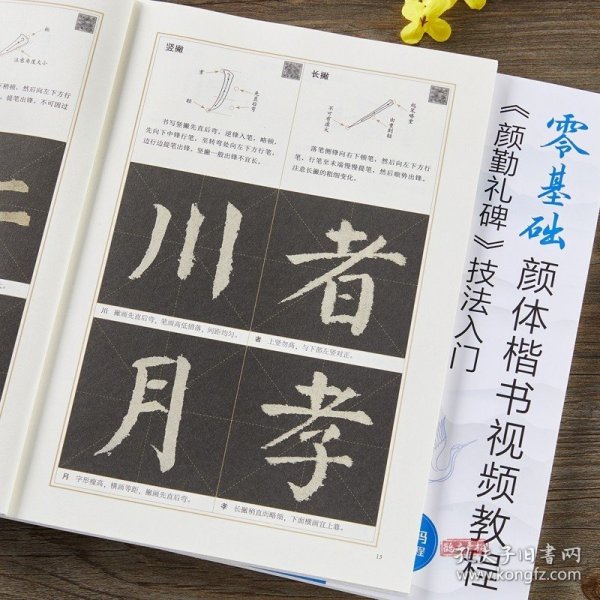 注意角度大小
竖撇
重
轻
先直后弯
书写竖撇先直后弯，逆锋入笔，略顿，
先向下中锋行笔，至转弯处向左下方行笔，
边行边提笔出锋。竖撇一般出锋不宜长。
长撇
起笔略重
由重到轻
不可有虚尖
落笔侧锋向右下顿笔，然后向左下方行
笔，行笔至末端慢慢提笔，然后顺势出锋。
注意长撇的粗细变化。
川
者
川 撇画先直后弯，笔画高低错落，间距均匀。
者 上竖勿高，与下部左竖对正。
月
孝
月 字形瘦高，横画等距，撇画先直后弯。
孝 长撇稍直而略细，下面横画宜上意。
13
零基础
颜体楷书视频教程
《颜勤礼碑》技法入门
孔夫子旧书网
www.kongfz.com